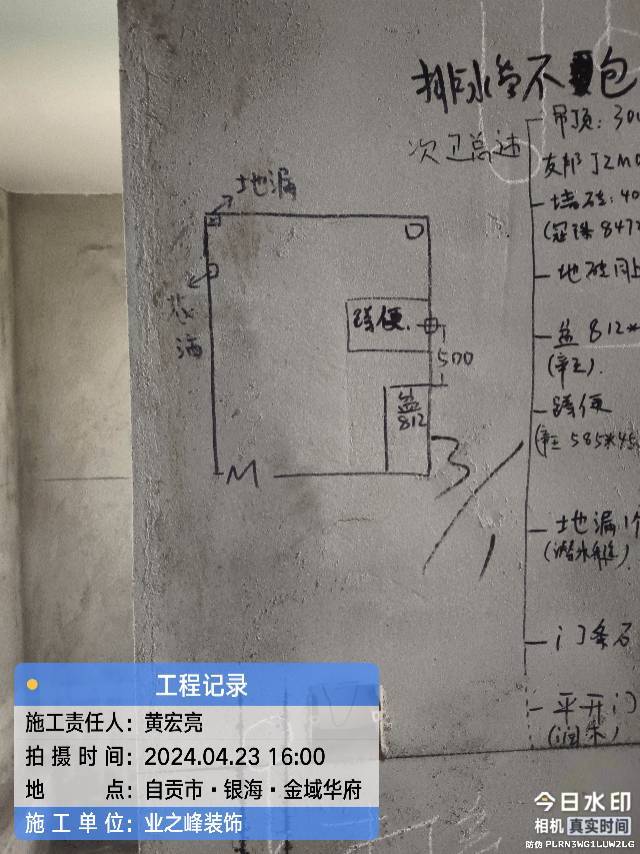 排水管不包
吊顶：300
次卫总述
友邦 JZM0
墙砖：40
(冠珠 8472
地漏
地砖同上
蹲便
500
盆 812*
盆
812
蹲便
585*45
M
地漏1个
(潜水艇)
门条石
平开门
工程记录
施工责任人：黄宏亮
拍摄时间：2024.04.23 16:00
地点：自贡市·银海·金域华府
施工单位：业之峰装饰
今日水印
相机 真实时间
防伪 PLRN3WG1LUW2LG